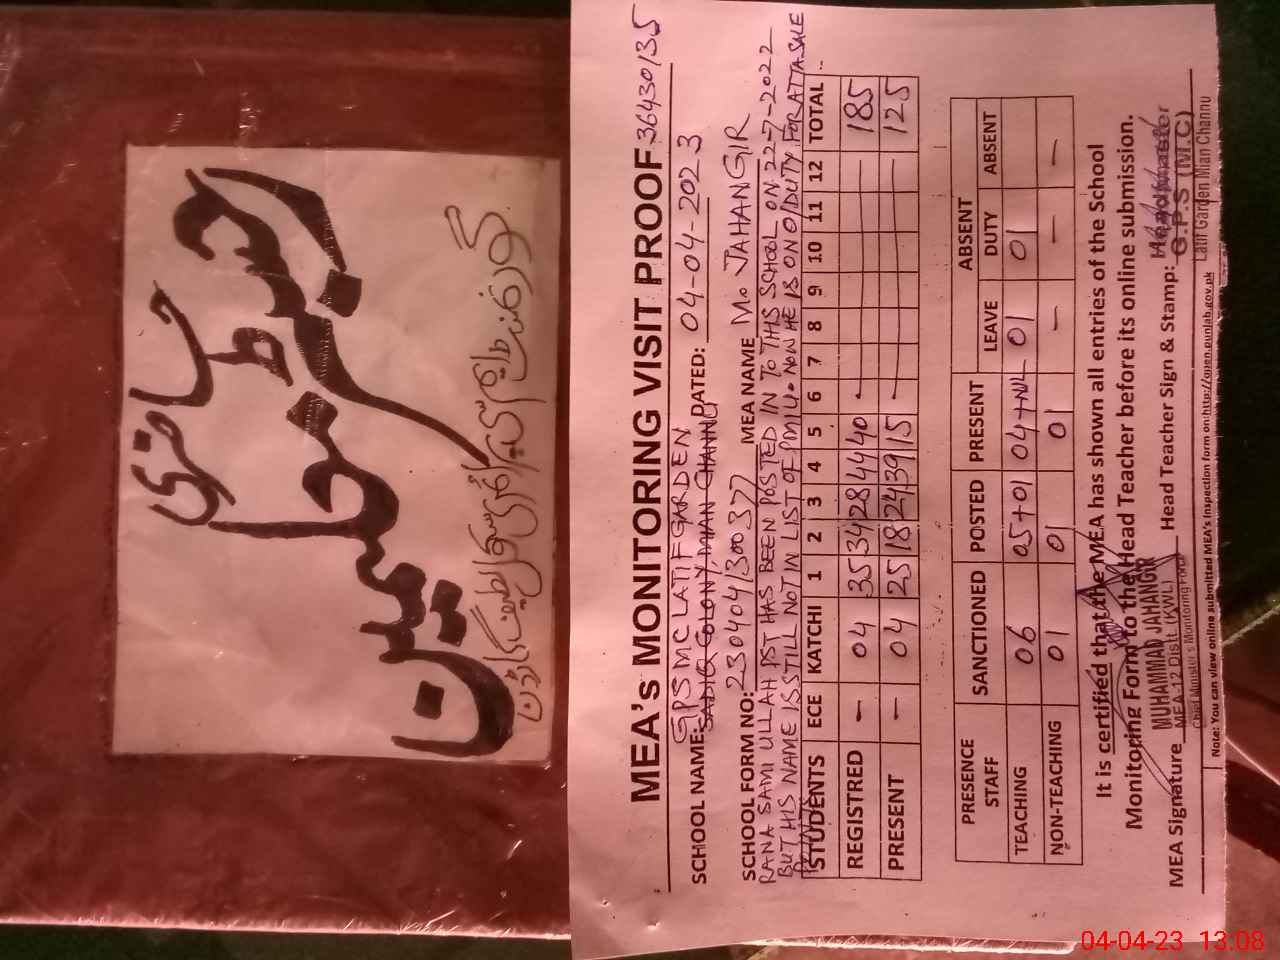 رجسٹر حاضری
معلمین
MEA's MONITORING VISIT PROOF 36430135
SCHOOL NAME: GPS MC LATIF GARDEN DATED: 04-04-2023
SADIQ COLONY, MIAN CHANNU
SCHOOL FORM NO: 230404/300377 MEA NAME M. JAHANGIR
RANA SAMI ULLAH PST HAS BEEN POSTED IN TO THIS SCHOOL ON 22-7-2022
BUT HIS NAME IS STILL NOT IN LIST OF PMIU. NOW HE IS ON O/DUTY FOR ATTA SALE
STUDENTS ECE KATCHI 1 2 3 4 5 6 7 8 9 10 11 12 TOTAL
REGISTRED — 04 35 34 28 44 40 - — 185
PRESENT — 04 25 18 24 39 15 — — 125
PRESENCE ABSENT
STAFF SANCTIONED POSTED PRESENT LEAVE DUTY ABSENT
TEACHING 06 05+01 04+NIL 01 01
NON-TEACHING 01 01 01 — — —
It is certified that the MEA has shown all entries of the School
Monitoring Form to the Head Teacher before its online submission.
MEA Signature Head Teacher Sign & Stamp:
MUHAMMAD JAHANGIR
MEA-12 Distt. (KWL)
Chief Minister's Monitoring Force
Headmaster
G.P.S (M.C)
Latif Garden Mian Channu
Note: You can view online submitted MEA's inspection form on:http://open.punjab.gov.pk
04-04-23 13:08